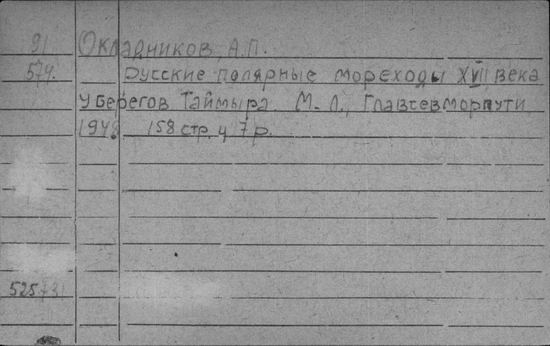 91 Окладников, А.П.
574. Русские полярные мореходы XVII века
у берегов Таймыра. М.-Л., Главсевморпути
1948 158 стр. ц 7 р.
525731